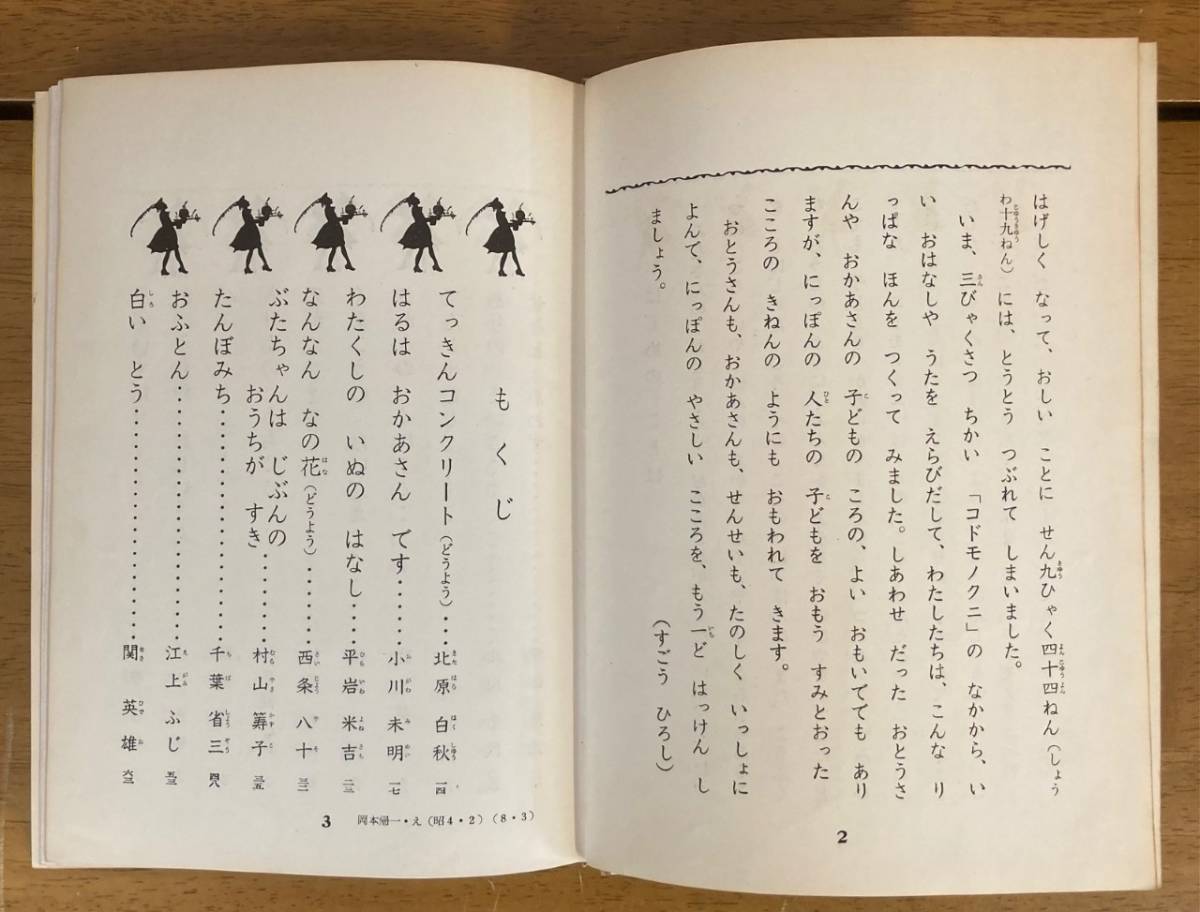 はげしく なって、おしい ことに せん九ひゃく四十四ねん(しょう
わ十九ねん)には、とうとう つぶれて しまいました。
いま、三びゃくさつ ちかい 「コドモノクニ」の なかから、い
い おはなしや うたを えらびだして、わたしたちは、こんな り
っぱな ほんを つくって みました。しあわせ だった おとうさ
んや おかあさんの 子どもの ころの、よい おもいででも あり
ますが、にっぽんの 人たちの 子どもを おもう すみとおった
こころの きねんの ようにも おもわれて きます。
おとうさんも、おかあさんも、せんせいも、たのしく いっしょに
よんで、にっぽんの やさしい こころを、もう一ど はっけん し
ましょう。
(すごう ひろし)
2
もくじ
てっきんコンクリート(どうよう)…北原 白秋 一四
はるは おかあさん です……小川 未明 一七
わたくしの いぬの はなし……平岩 米吉 二三
なんなん なの花(どうよう)……西条 八十 三二
ぶたちゃんは じぶんの
おうちが すき……村山 籌子 三五
たんぽみち……千葉 省三 四八
おふとん……江上 ふじ 五三
白い とう……関 英雄 六三
3
岡本帰一・え(昭4・2)(8・3)